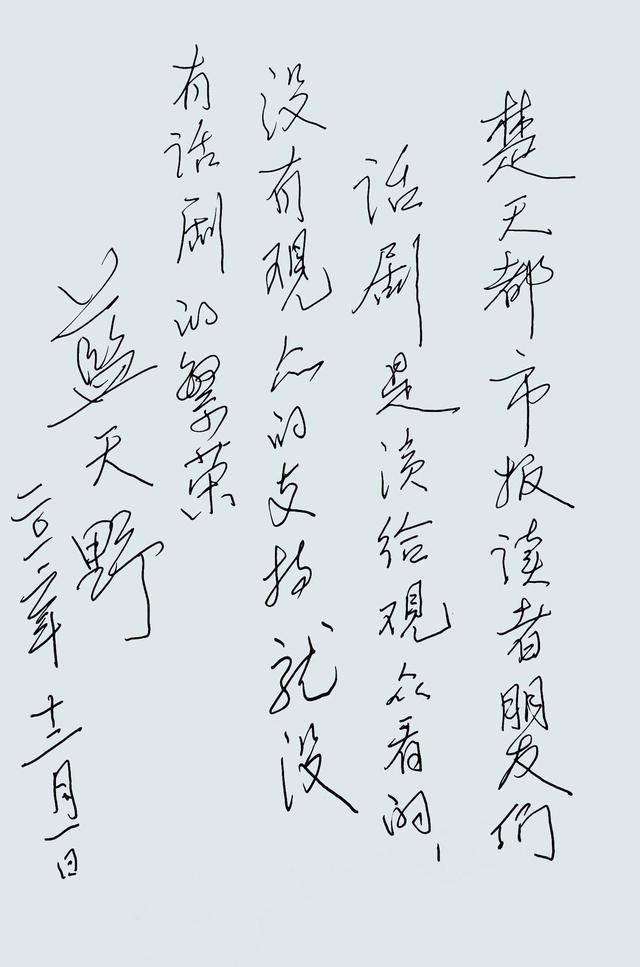 楚天都市报读者朋友们
话剧是演给观众看的,
没有观众的支持就没
有话剧的繁荣
蓝天野
二〇一二年十二月一日